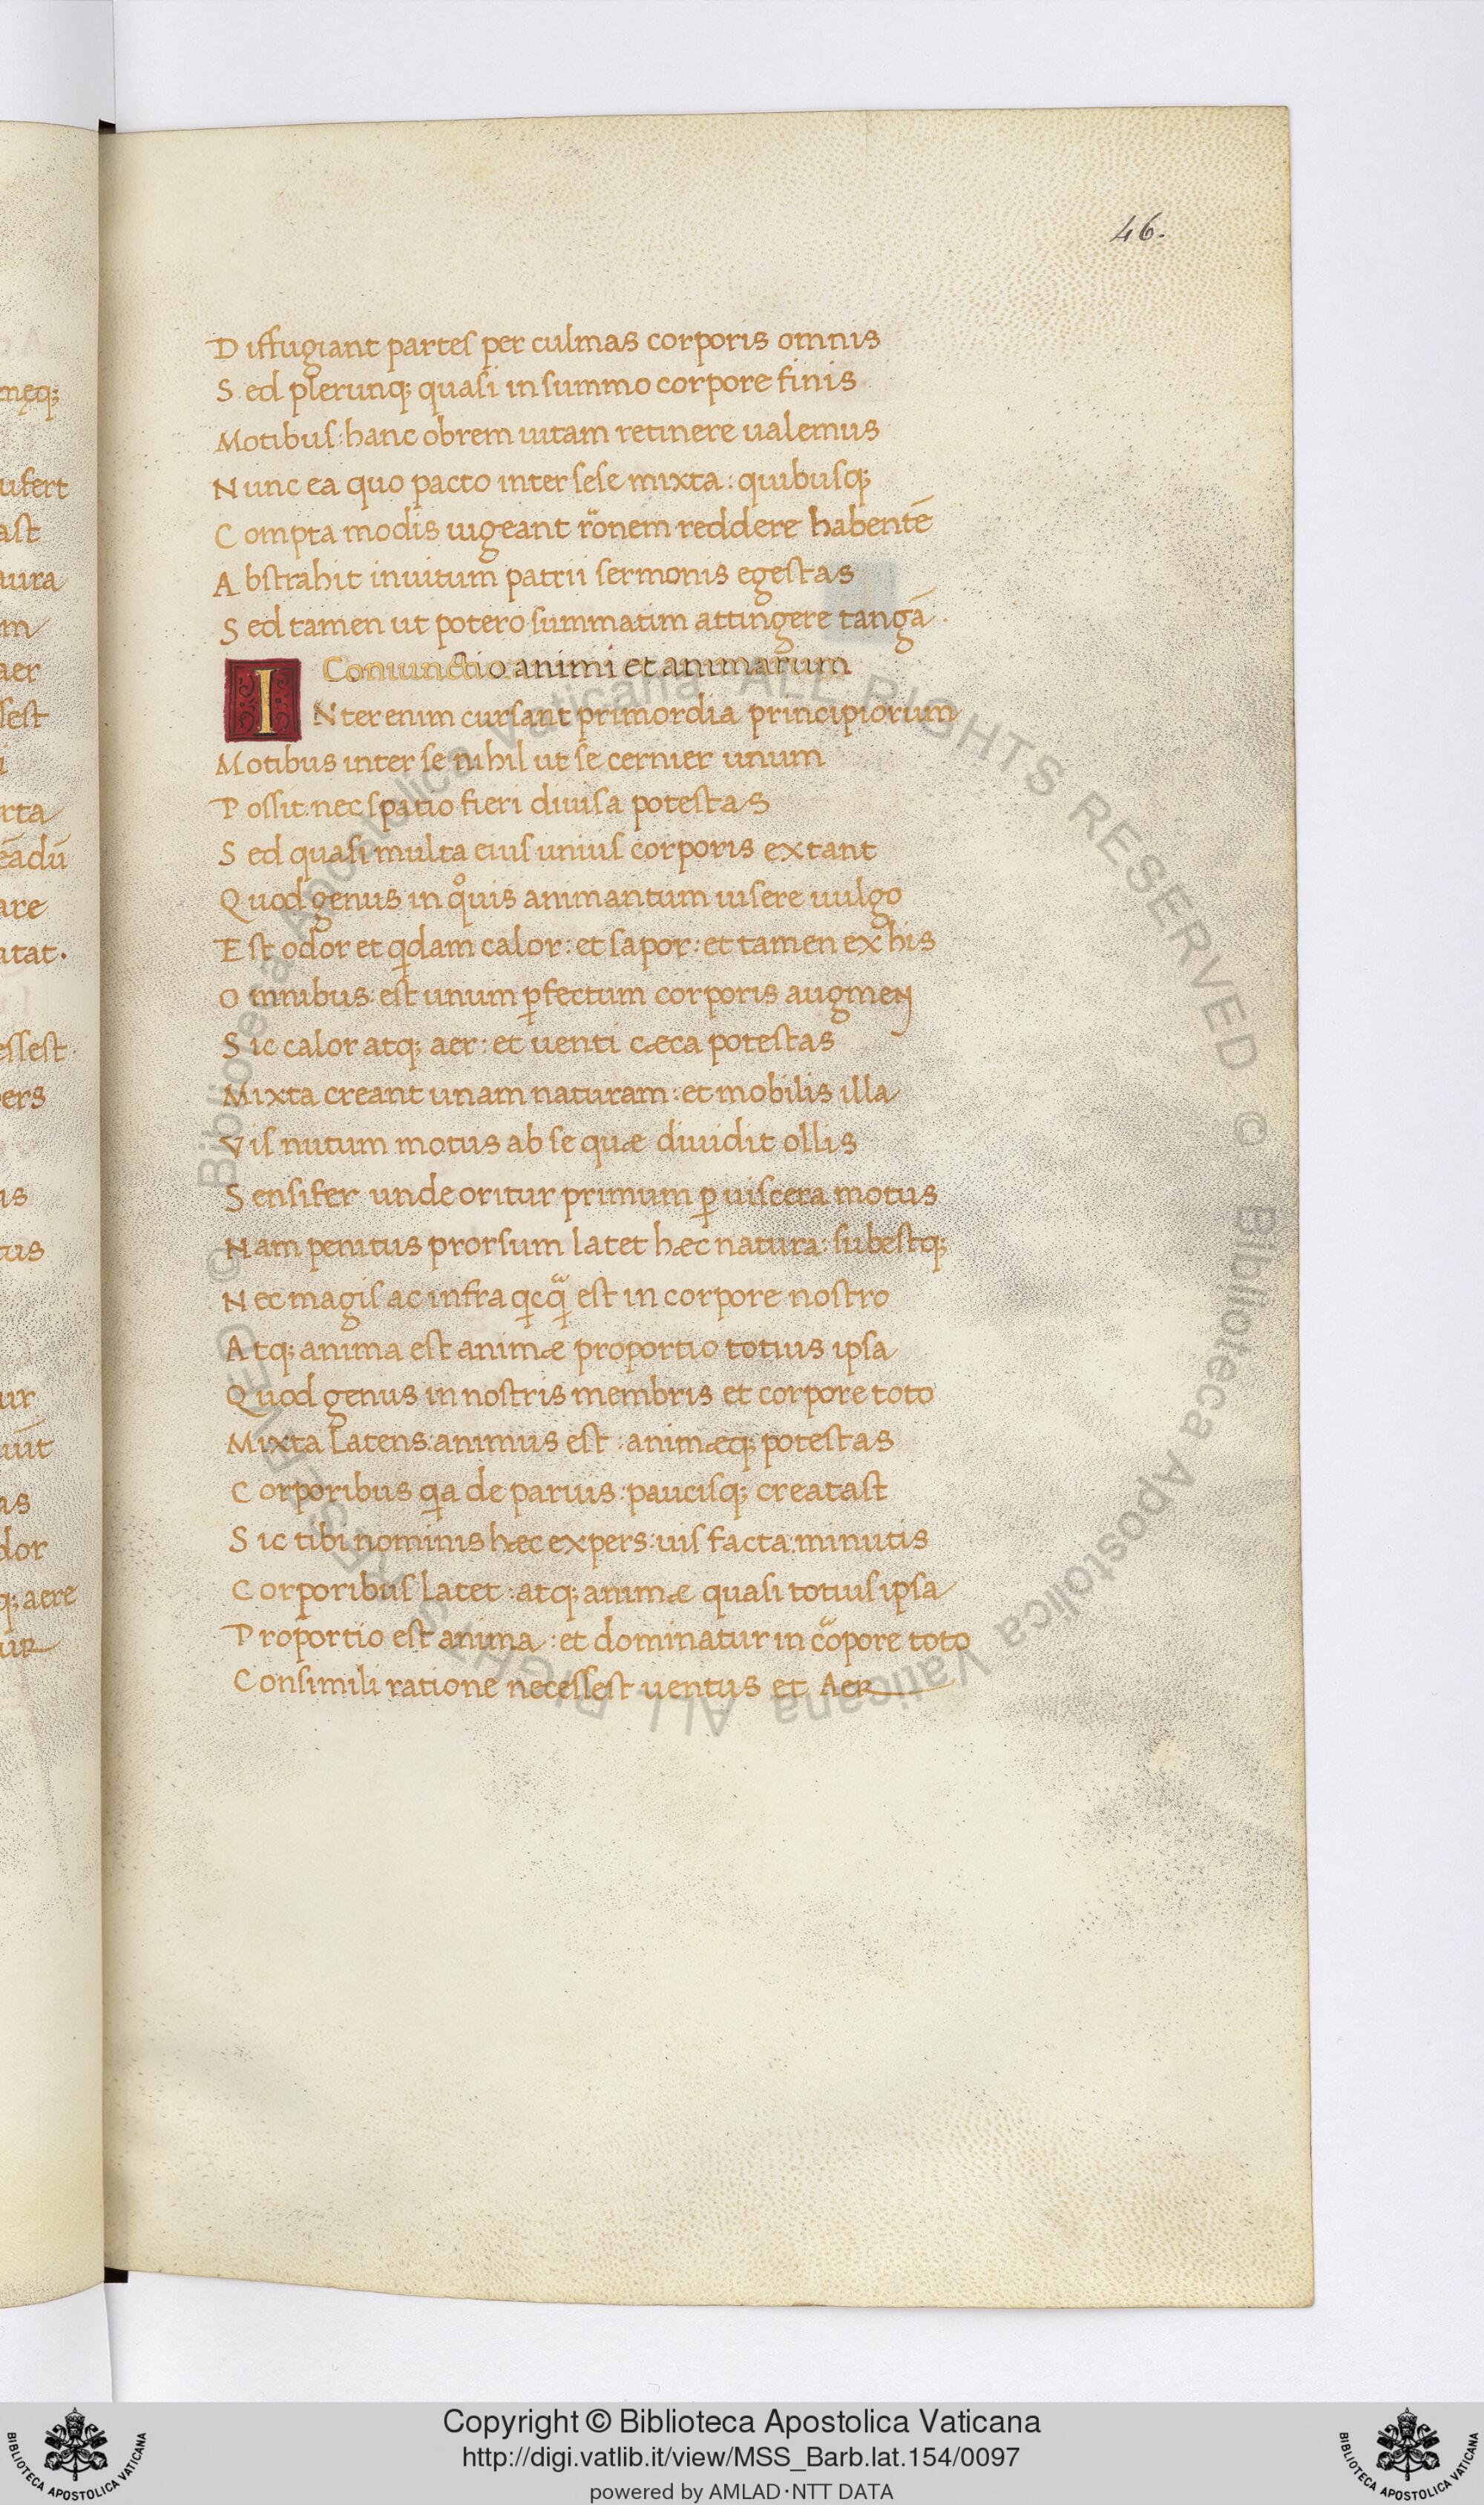 46.
Diffugiant partes per culmas corporis omnis
Sed plerunq; quasi in summo corpore finis
Motibus: hanc obrem uitam retinere ualemus
Nunc ea quo pacto inter sese mixta: quibusq;
Compta modis uigeant rõnem reddere habentẽ
Abstrahit inuitum patrii sermonis egestas
Sed tamen ut potero summatim attingere tangã.
Coniunctio animi et animarum
INter enim cursant primordia principiorum
Motibus inter se nihil ut se cernier unum
Possit: nec spatio fieri diuisa potestas
Sed quasi multa eius unius corporis extant
Quod genus in qͦuis animantum uisere uulgo
Est odor et qdam calor: et sapor: et tamen ex his
Omnibus: est unum ꝑfectum corporis augmen
Sic calor atq; aer: et uenti cæca potestas
Mixta creant unam naturam: et mobilis illa
Vis nutum motus ab se quæ diuidit ollis
Sensifer unde oritur primum ꝑ uiscera motus
Nam penitus prorsum latet hæc natura: subestq;
Nec magis ac infra qcq̃ est in corpore nostro
Atq; anima est animæ proportio totius ipsa
Quod genus in nostris membris et corpore toto
Mixta latens: animus est: animæq; potestas
Corporibus qa de paruis: paucisq; creatast
Sic tibi nominis hæc expers: uis facta: minutis
Corporibus latet: atq; animæ quasi totius ipsa
Proportio est anima: et dominatur in cõpore toto
Consimili ratione necessest uentus et Aer
neq;
ufert
ast
aura
aer
sest
rta
eadũ
are
utat.
essest.
ers
is
tus
ur
uit
as
dor
q; aere
uR
© Biblioteca Apostolica Vaticana ALL RIGHTS RESERVED
© Biblioteca Apostolica Vaticana ALL RIGHTS RESERVED
Copyright © Biblioteca Apostolica Vaticana
http://digi.vatlib.it/view/MSS_Barb.lat.154/0097
powered by AMLAD·NTT DATA
BIBLIOTECA APOSTOLICA VATICANA
BIBLIOTECA APOSTOLICA VATICANA